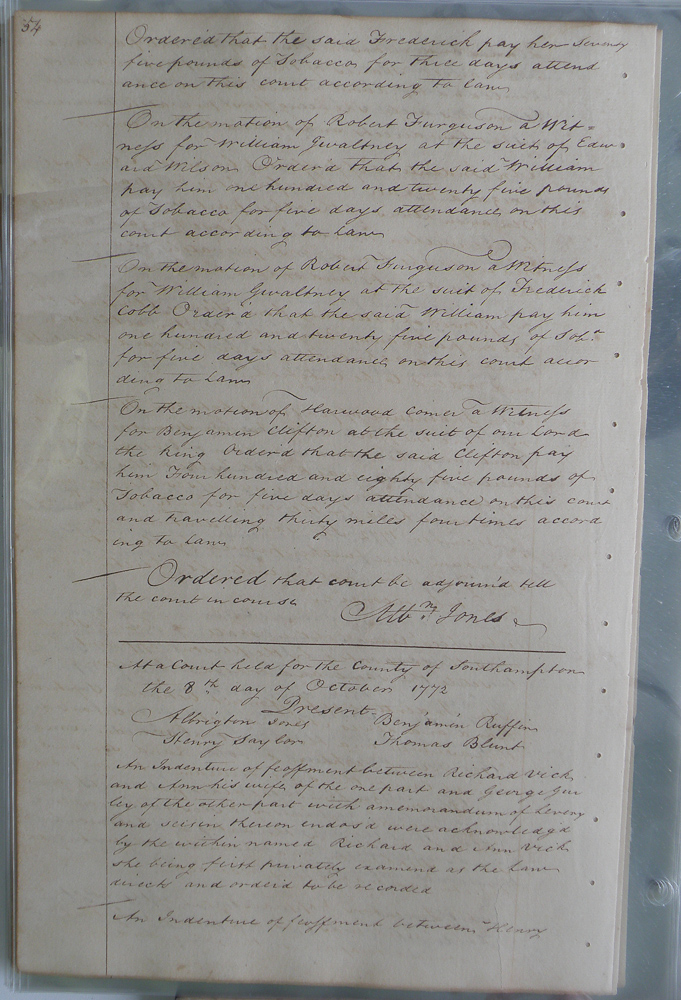 54
Ordered that the said Frederick pay her Seventy
five pounds of Tobacco for three days attend
ance on this court according to Law
On the motion of Robert Furguson a Wit=
ness for William Gwaltney at the suit of Edw
ard Wilson Order'd that the said William
pay him one hundred and twenty five pounds
of Tobacco for five days attendance on this
court according to Law
On the motion of Robert Furguson a Witness
for William Gwaltney at the suit of Frederick
Cobb Order'd that the said William pay him
one hundred and twenty five pounds of Tob.o
for five days attendance on this court accor
ding to Law
On the motion of Harwood Comer a Witness
for Benjamin Clifton at the suit of our Lord
the King Order'd that the said Clifton pay
him Four hundred and eighty five pounds of
Tobacco for five days attendance on this court
and travelling thirty miles four times accord
ing to Law
Ordered that court be adjourn'd till
the court in course
Alb.n Jones
At a Court held for the County of Southampton
the 8th day of October 1772
Present
Albrigton Jones Benjamin Ruffin
Henry Taylor Thomas Blunt
An Indenture of feoffment between Richard Vick
and Ann his wife of the one part and George Gur
ley of the other part with a memorandum of Livery
and seisin thereon endors'd were acknowledg'd
by the within named Richard and Ann Vick
she being first privately examend as the Law
directs and order'd to be recorded
An Indenture of feoffment between Henry